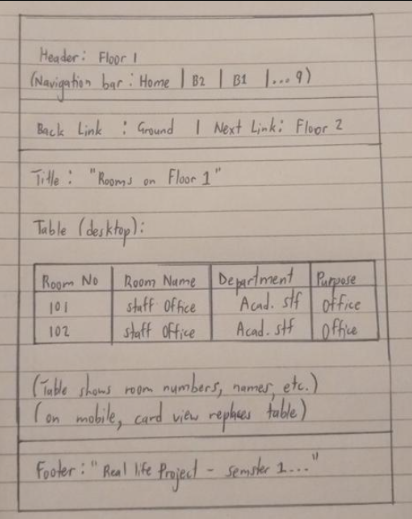 Header: Floor 1
(Navigation bar: Home | B2 | B1 |... 9)
Back Link : Ground | Next Link: Floor 2
Title: "Rooms on Floor 1"
Table (desktop):
Room No | Room Name | Department | Purpose
101 | staff Office | Acad. stf | Office
102 | staff Office | Acad. stf | Office
(Table shows room numbers, names, etc.)
(on mobile, card view replaces table)
Footer: "Real life Project - semster 1..."